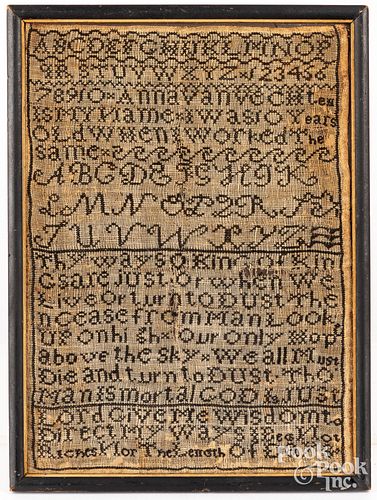 ABCDEFGHIJKLMNOP
QRSTUVWXYZ×123456
78910×AnnaVanvecHten
isMYName iwas10 Years
OLdwHen iworked THe
same
ABCDEFGHIJK
LMNOPQRS
TUVWXYZ
THYwaysOKingofKin
Gsare Just for wHen we
Live or turn to DUST THe
n cease from Man Look
up on HiGH×Our only Hope
above tHe sky×we all Must
Die and turn to DUST THo
Man is mortal GOD is JUST
Lord Give Me WisDOM t
Direct MY Way
RicHes for THe LenGtH Of
Pook
& Pook
Inc.